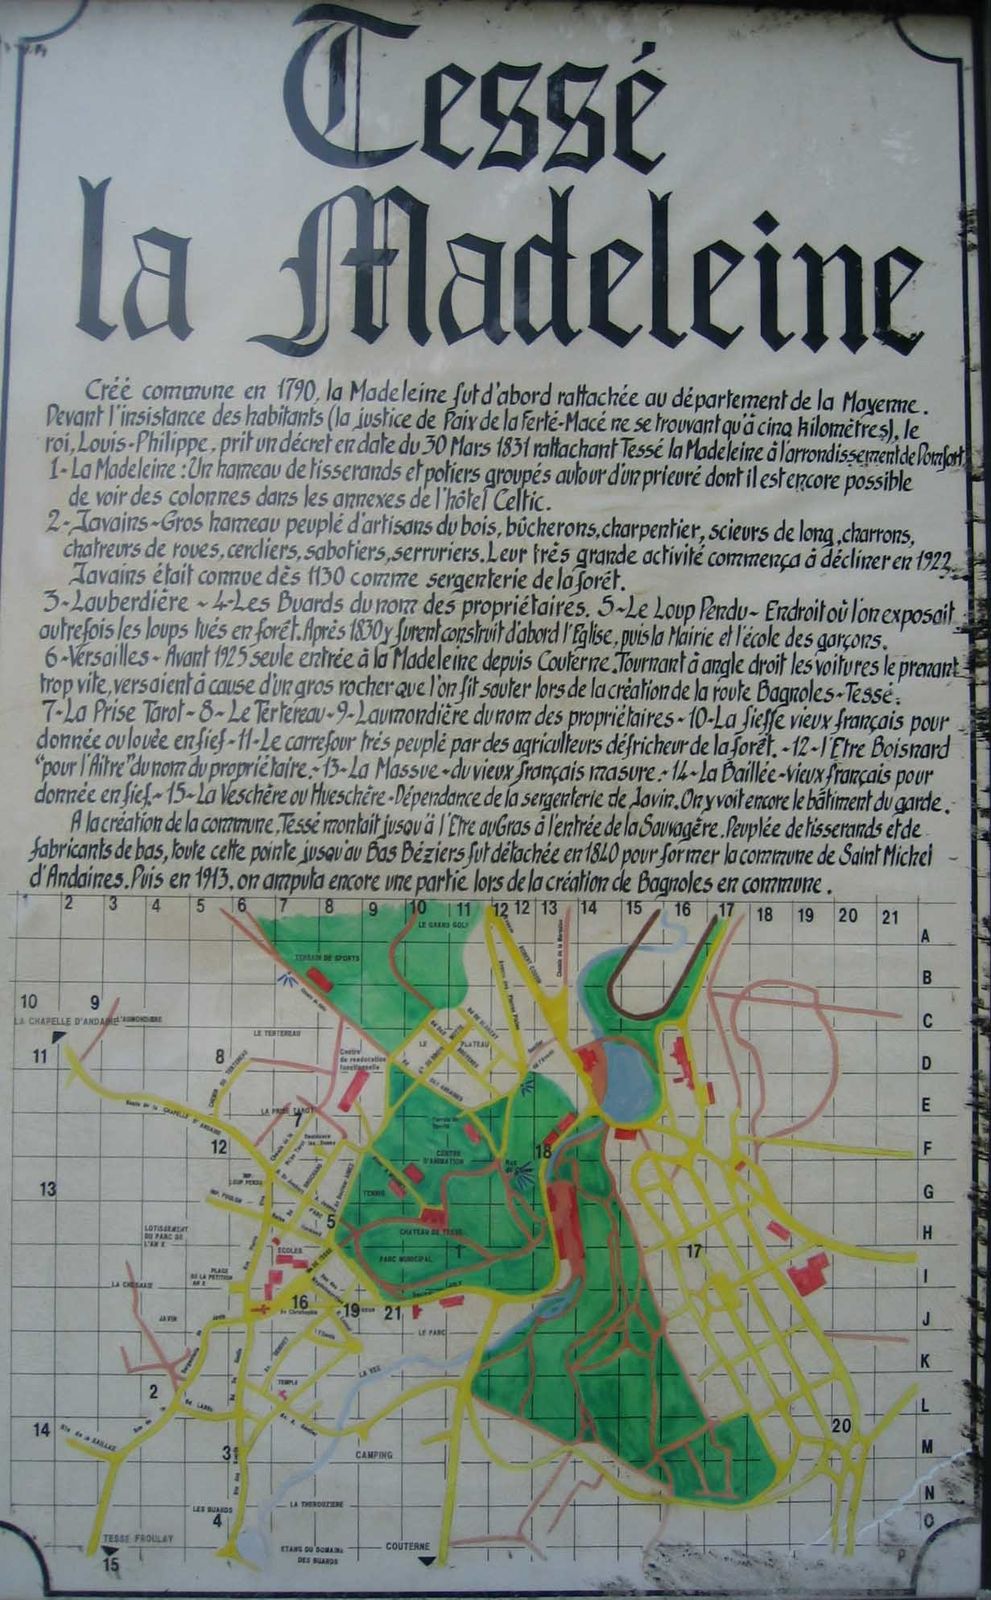 Tessé
la Madeleine
Créé commune en 1790, la Madeleine fut d'abord rattachée au département de la Mayenne.
Devant l'insistance des habitants (la justice de Paix de la Ferté-Macé ne se trouvant qu'à cinq kilomètres), le
roi, Louis-Philippe, prit un décret en date du 30 Mars 1831 rattachant Tessé la Madeleine à l'arrondissement de Domfort
1- La Madeleine : Un hameau de tisserands et potiers groupés autour d'un prieuré dont il est encore possible
de voir des colonnes dans les annexes de l'hôtel Celtic.
2- Javains - Gros hameau peuplé d'artisans du bois, bûcherons, charpentier, scieurs de long, charrons,
chatreurs de roues, cercliers, sabotiers, serruriers. Leur très grande activité commença à décliner en 1922.
Javains était connue dès 1130 comme sergenterie de la forêt.
3- Lauberdière - 4- Les Buards du nom des propriétaires. 5- Le Loup Pendu - Endroit où l'on exposait
autrefois les loups tués en forêt. Après 1830 y furent construit d'abord l'Eglise, puis la Mairie et l'école des garçons.
6- Versailles - Avant 1925 seule entrée à la Madeleine depuis Couterne. Tournant à angle droit les voitures le prenant
trop vite, versaient à cause d'un gros rocher que l'on fit sauter lors de la création de la route Bagnoles-Tessé.
7- La Prise Tarot - 8- Le Tertereau - 9- Laumondière du nom des propriétaires - 10- La fieffe vieux français pour
donnée ou louée en fief - 11- Le carrefour très peuplé par des agriculteurs défricheur de la forêt. - 12- l'Etre Boisnard
"pour l'Aître" du nom du propriétaire. - 13- La Massue - du vieux français masure. - 14- La Baillée - vieux français pour
donnée en fief. - 15- La Veschère ou Hueschère - Dépendance de la sergenterie de Javin. On y voit encore le bâtiment du garde.
A la création de la commune, Tessé montait jusqu'à l'Etre au Gras à l'entrée de la Sauvagère. Peuplée de tisserands et de
fabricants de bas, toute cette pointe jusqu'au Bas Béziers fut détachée en 1840 pour former la commune de Saint Michel
d'Andaines. Puis en 1913, on amputa encore une partie lors de la création de Bagnoles en commune.
2 3 4 5 6 7 8 9 10 11 12 12 13 14 15 16 17 18 19 20 21
LE GRAND GOLF
A
TERRAIN DE SPORTS
B
10 9
C
LA CHAPELLE D'ANDAINE
LE TERTEREAU
LE PLATEAU
11
8
Centre
de reeducation
fonctionnelle
D
E
Route de la CHAPELLE D'ANDAINE
LA PRISE TAROT
7
12
CENTRE
D'ANIMATION
18
F
13
LOUP PENDU
TENNIS
G
5
CHATEAU DE TESSE
H
LOTISSEMENT
DU PARC DE
L'AN X
ECOLES
PARC MUNICIPAL
1
17
PLACE
DE LA PETITION
AN X
I
16
19
21
J
JAVIN
LE PARC
LA VEE
K
TEMPLE
2
L
14
20
3
CAMPING
M
LES BUARDS
LA THEROUZIERE
N
4
O
TESSE FROULAY
ETANG DU DOMAINE
DES BUARDS
COUTERNE
P
15